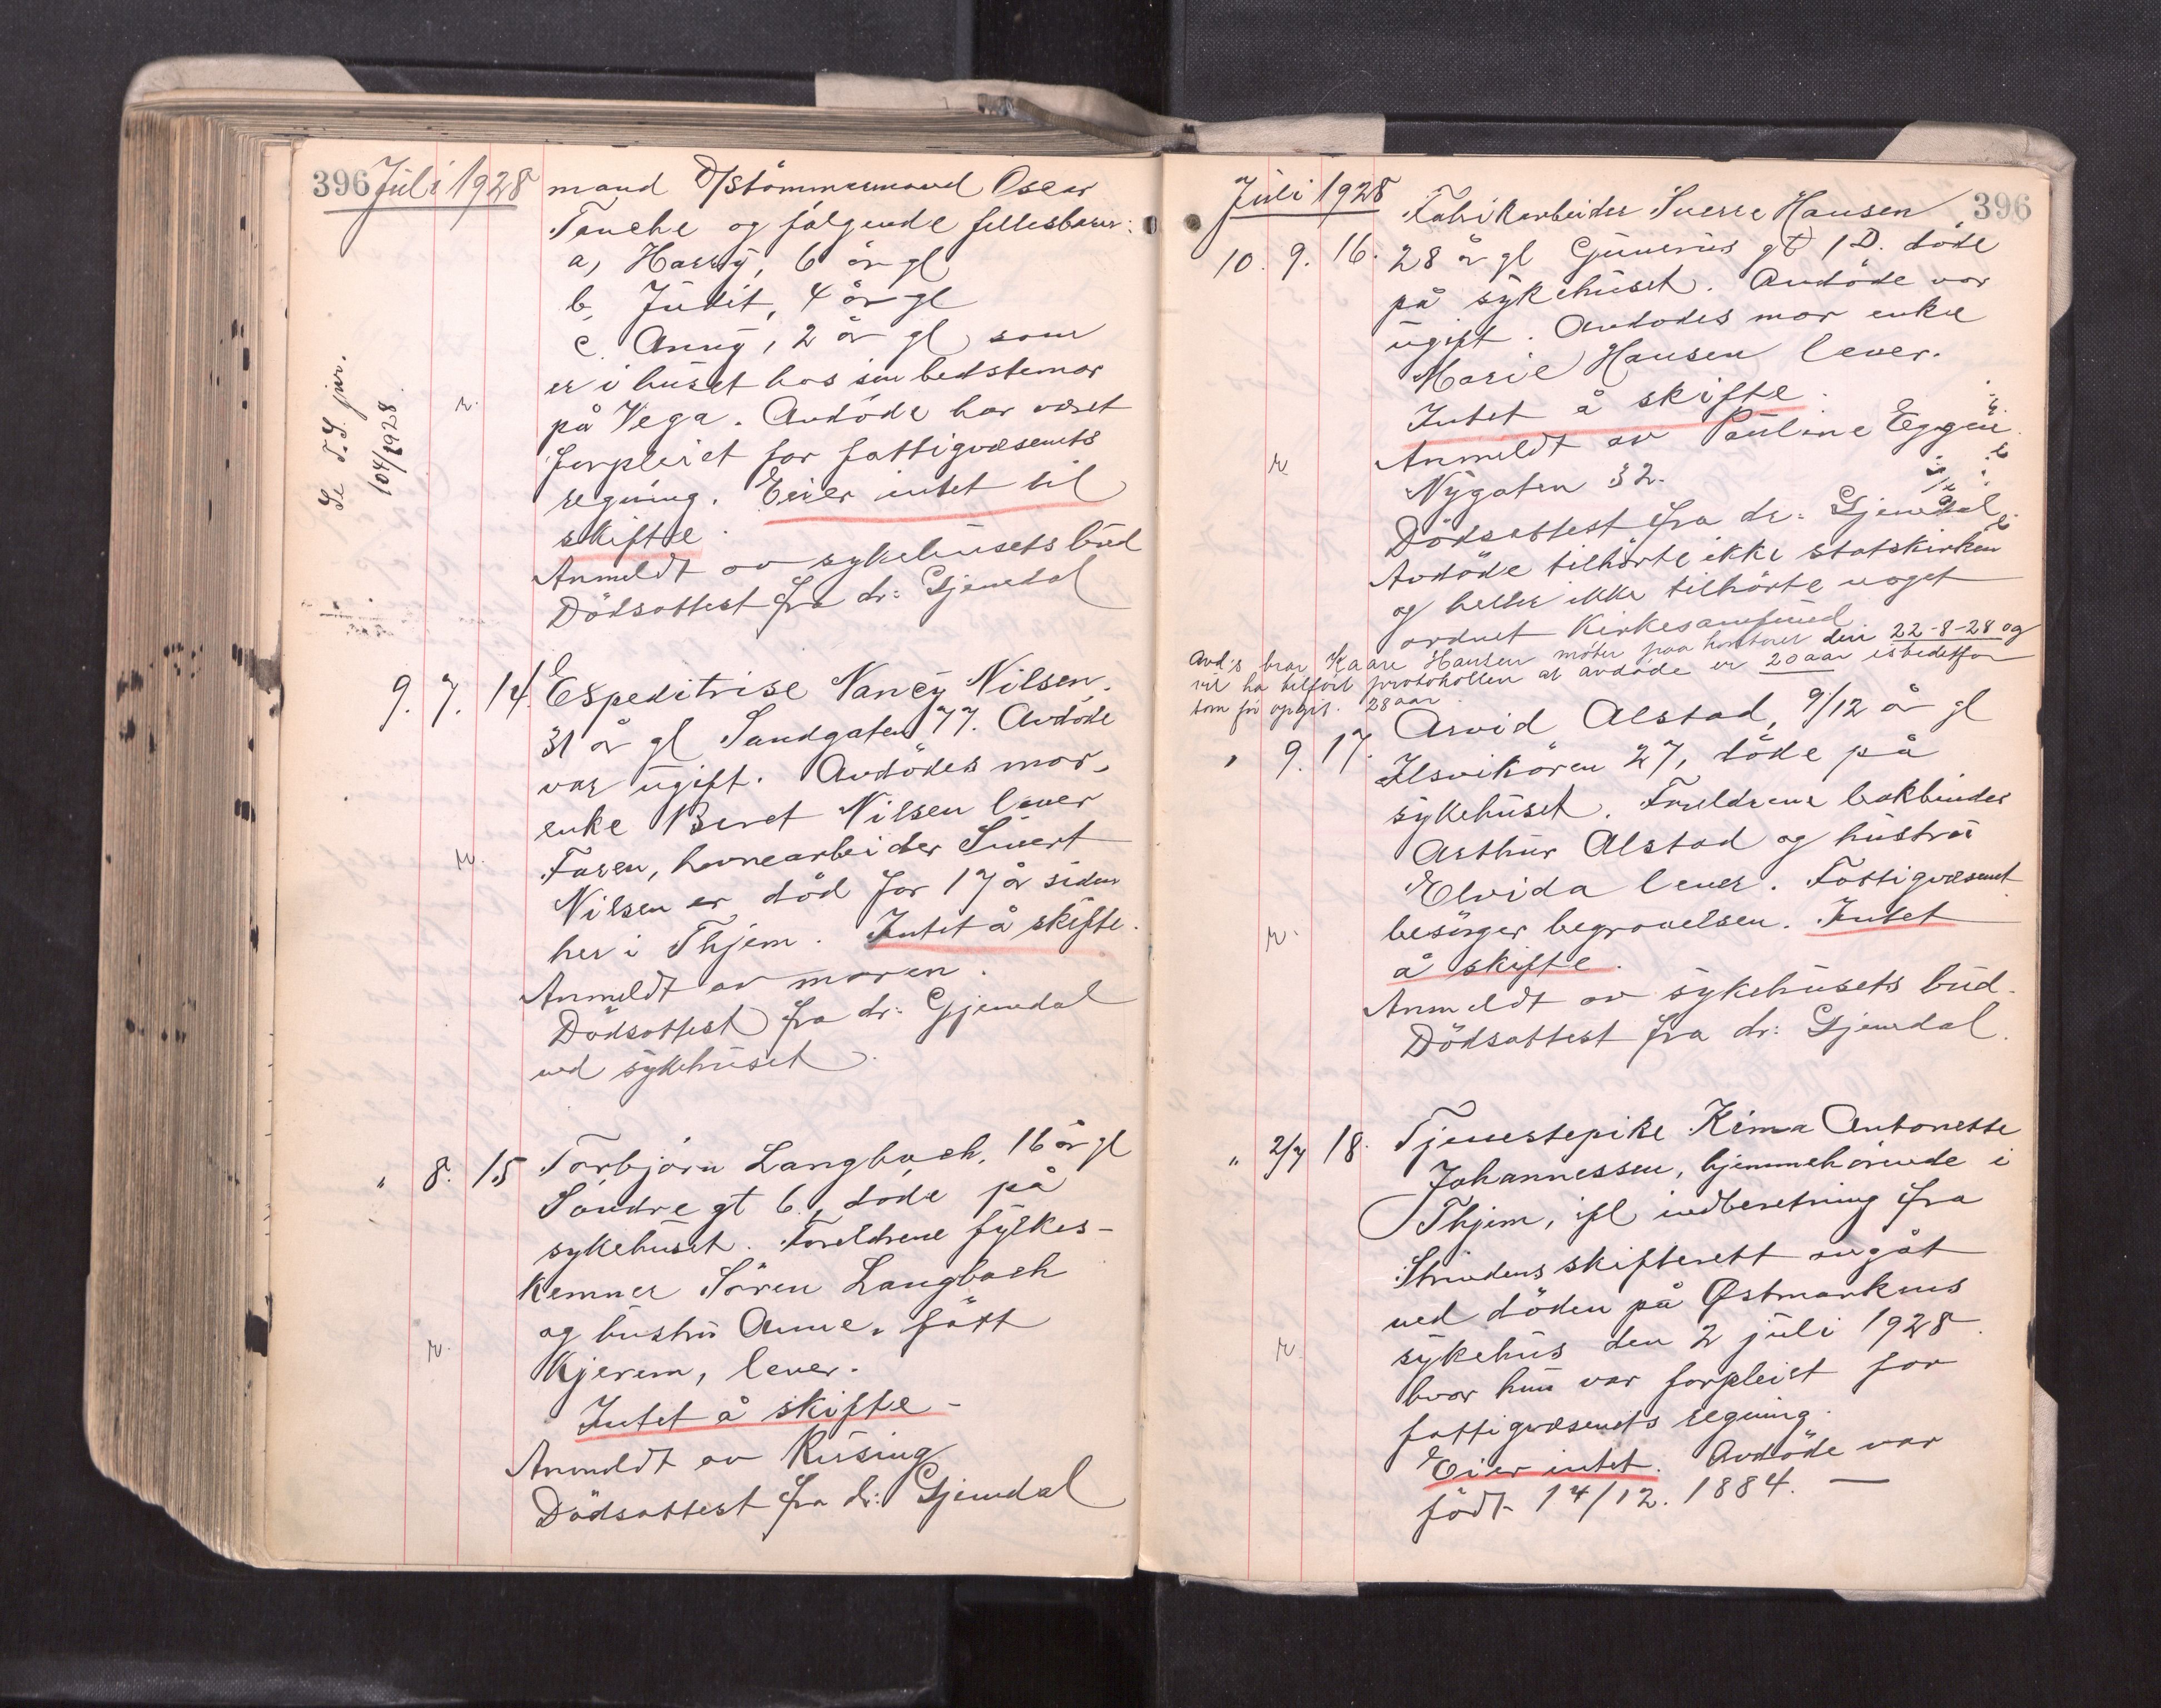 396 Juli 1928 mand D/Stömmermand Oscar
Tanche og fölgende fellesbarn:
a, Harry, 6 år gl
b, Judit, 4 år gl
c. Anny, 2 år gl som
er i huset hos sin bedstemor
r.
på Vega. Avdöde har været
forpleiet for fattigvæsenets
regning. Eier intet til
skifte.
Anmeldt av sykehusets bud
Dödsattest fra dr: Gjemdal
Se F.S. jur.
104/1928
9. 7. 14. Expeditrise Nancy Nilsen,
31 år gl Sandgaten 77. Avdöde
var ugift. Avdödes mor,
enke Beret Nilsen lever
r.
Faren, havnearbeider Sivert
Nilsen er död for 17 år siden
her i Thjem. Intet å skifte.
Anmeldt av moren.
Dödsattest fra dr: Gjemdal
ved sykehuset.
" 8. 15 Torbjörn Langbach, 16 år gl
Söndre gt 6, döde på
sykehuset. Foreldrene fylkes-
kemner Sören Langbach
og hustru Anne, födt
r.
Kjerem, lever.
Intet å skifte -
Anmeldt av Rising
Dödsattest fra dr: Gjemdal
Juli 1928 Fabrikarbeider Sverre Hansen 396
10. 9. 16. 28 år gl Gunnerus gt 1D. döde
på sykehuset. Avdöde var
ugift. Avdödes mor enke
Marie Hansen lever.
Intet å skifte.
r
Anmeldt av Pauline Eggen
Nygaten 32.
Dödsattest fra dr: Gjemdal
Avdöde tilhörte ikke statskirken
og heller ikke tilhörte noget
ordnet kirkesamfund
Avd's bror Kaare Hansen möter paa kontoret den 22-8-28 og
vil ha tilfört protokollen at avdöde er 20 aar istedetfor
som för opgit. 28 aar.
" 9. 17. Arvid Alstad, 9/12 år gl
Ilsvikören 27, döde på
sykehuset. Foreldrene bokbinder
Arthur Alstad og hustru
Elvida lever. Fattigvæsenet
r.
besörger begravelsen. Intet
å skifte.
Anmeldt av sykehusets bud.
Dödsattest fra dr: Gjemdal.
" 2/7 18. Tjenestepike Kima Antonette
Johannessen, hjemmehörende i
Thjem, ifl indberetning fra
Strindens skifterett avgåt
ved döden på Østmarkens
r.
sykehus den 2 juli 1928
hvor hun var forpleiet for
fattigvæsenets regning.
Eier intet. Avdöde var
födt 14/12. 1884. —